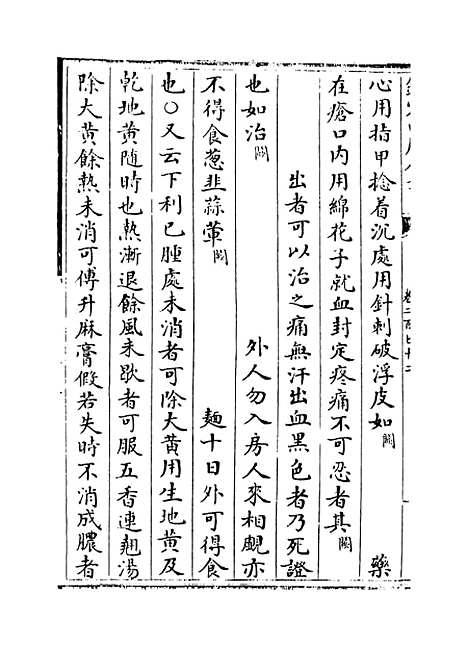 卷二百七十二
心用指甲捻着沉處用針刺破浮皮如闕藥
在瘡口内用綿花子就血封定疼痛不可忍者其闕
出者可以治之痛無汗出血黑色者乃死證
也如治闕外人勿入房人來相覷亦
不得食葱韭蒜葷闕麺十日外可得食
也○又云下利已腫處未消者可除大黄用生地黄及
乾地黄随時也熱漸退餘風未歇者可服五香連翹湯
除大黄餘熱未消可傅升麻膏假若失時不消成膿者